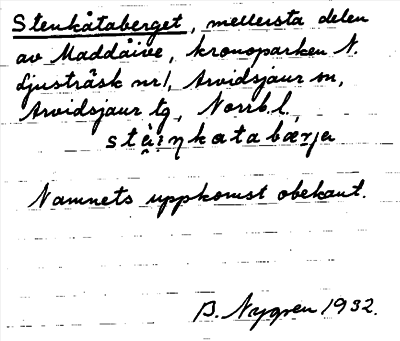 Stenkåtaberget, mellersta delen
av Maddåive, kronoparken N.
Ljusträsk nr 1, Arvidsjaur sn,
Arvidsjaur tg, Norrb. l.
Namnets uppkomst obekant.
B. Nygren 1932.